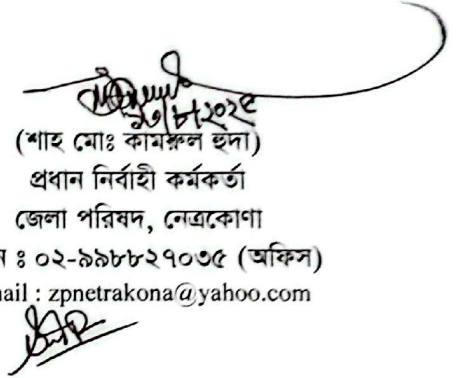 ২০২৫
(শাহ মোঃ কামরুল হুদা)
প্রধান নির্বাহী কর্মকর্তা
জেলা পরিষদ, নেত্রকোণা
ন ঃ ০২-৯৯৮৮২৭০৩৫ (অফিস)
ail : zpnetrakona@yahoo.com